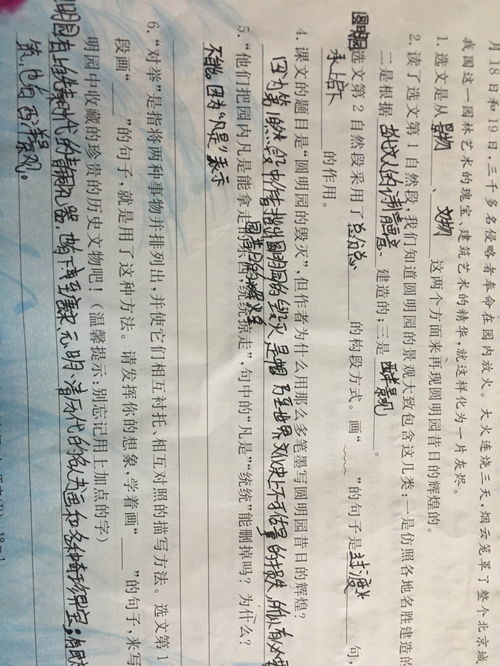 月18日和19日,三千多名侵略者奉命在园内放火。大火连烧三天,烟云笼罩了整个北京城
我国这一园林艺术的瑰宝、建筑艺术的精华,就这样化为一片灰烬。
1. 选文是从 景物 、 文物 这两个方面来再现圆明园昔日的辉煌的。
2. 读了选文第1自然段,我们知道圆明园的景观大致包含这几类:一是仿照各地名胜建造的
二是根据 古代诗人的诗情画意 建造的;三是 西洋景观 。
圆明园选文第2自然段采用了 总分总 的构段方式。画“﹏﹏”的句子是 过渡 句,
承上启下 的作用。
4. 课文的题目是“圆明园的毁灭”,但作者为什么用那么多笔墨写圆明园昔日的辉煌?
因为第1自然段中作者指出圆明园的毁灭是中国乃至世界文化史上不可估量的损失,所以
5. “他们把园内凡是能拿走的东西,统统掠走”,句中的“凡是”“统统”能删掉吗?为什么?
不能,因为“凡是”表示
6. “对举”是指将两种事物并排列出,并使它们相互衬托、相互对照的描写方法。选文第1
段画“____”的句子,就是用了这种方法。请发挥你的想象,学着画“____”的句子,来写
明园中收藏的珍贵的历史文物吧!(温馨提示:别忘记用上加点的字)
明园有上自先秦时代的青铜礼器,下至唐宋元明清历代的名人书画和各种奇珍异宝;
有西洋景观。